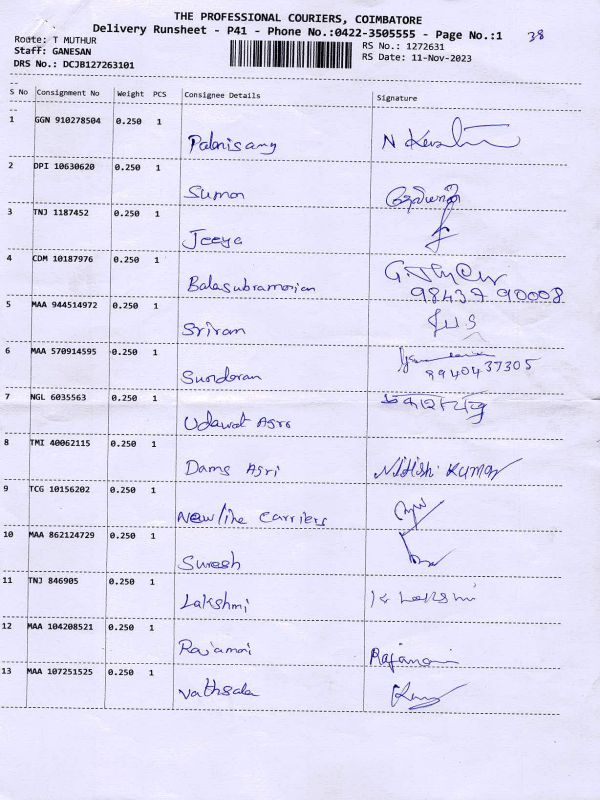 THE PROFESSIONAL COURIERS, COIMBATORE
Delivery Runsheet - P41 - Phone No.:0422-3505555 - Page No.:1 38
Route: T MUTHUR RS No.: 1272631
Staff: GANESAN RS Date: 11-Nov-2023
DRS No.: DCJB127263101
S No Consignment No Weight PCS Consignee Details Signature
1 GGN 910278504 0.250 1
Palanisamy
2 DPI 10630620 0.250 1
Suman
3 TNJ 1187452 0.250 1
Jeeya
4 CDM 10187976 0.250 1
Balasubramanian
98437 90008
5 MAA 944514972 0.250 1
Sriram
6 MAA 570914595 0.250 1
Sundaran 9940437305
7 NGL 6035563 0.250 1
Udawat Agro
8 TMI 40062115 0.250 1
Dams Agri Nithish Kumar
9 TCG 10156202 0.250 1
Newline Carriers
10 MAA 862124729 0.250 1
Suresh
11 TNJ 846905 0.250 1
Lakshmi K Lakshmi
12 MAA 104208521 0.250 1
Rajamani Rajamani
13 MAA 107251525 0.250 1
Vathsala